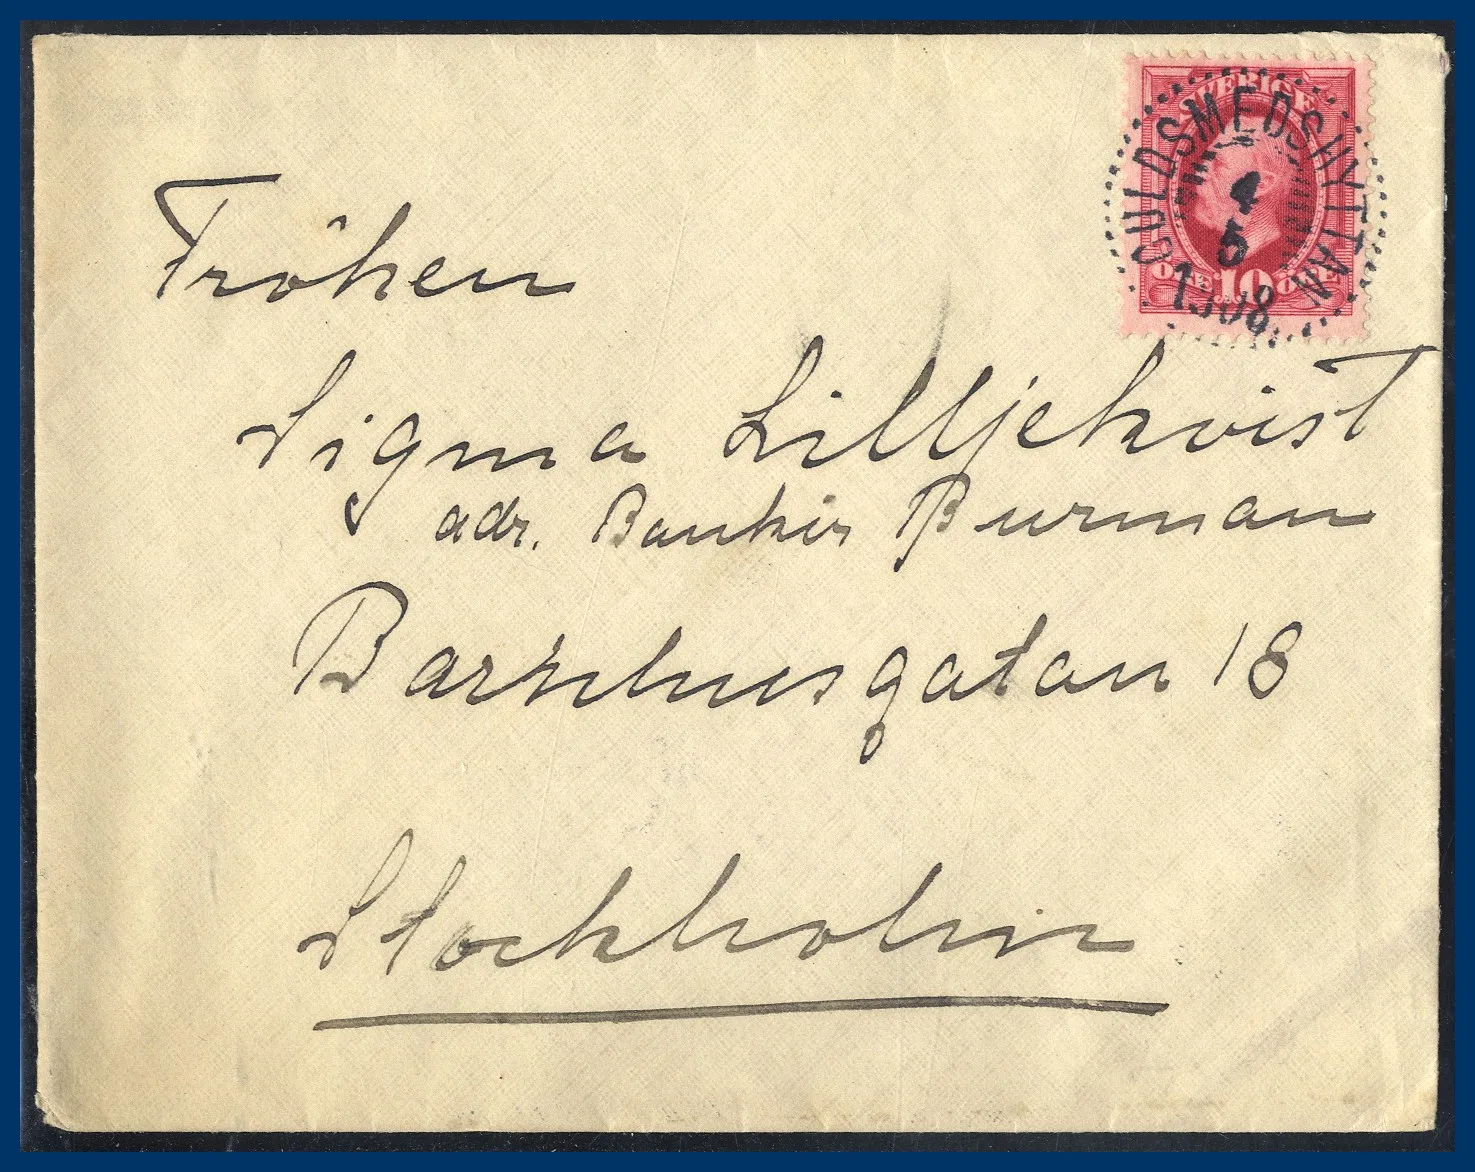 SVERIGE
GULDSMEDSHYTTAN
4
5
1908
ÖRE 10 ÖRE
Fröken
Sigma Lilljekvist
adr. Bankir Burman
Barnhusgatan 18
Stockholm